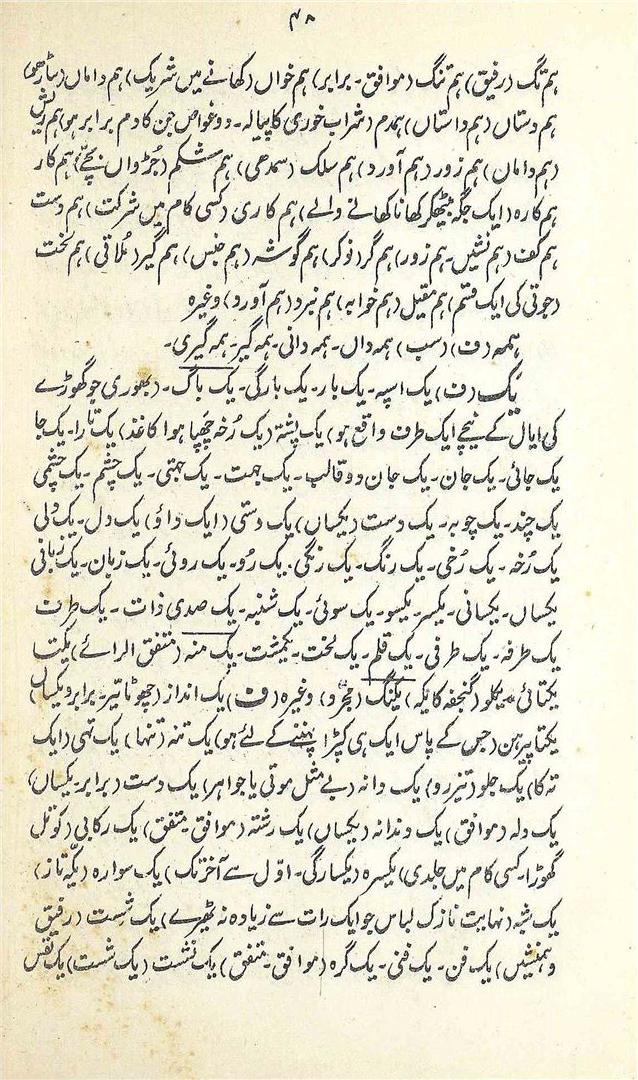 ۴۸
ہم تگ (رفیق) ہم تنگ (موافق۔ برابر) ہم خواں (کھانے میں شریک) ہم داماں (ساڑھو)
ہم دستاں (ہم داستاں) ہمدم (شراب خوری کا پیالہ۔ دو غواص جن کا دم برابر ہو) ہم ریش
(ہم دامان) ہم زور (ہم آورد) ہم سلک (سمدھی) ہم شکم (جڑواں بچے) ہم کار
ہم کارہ (ایک جگہ بیٹھکر کھانا کھانے والے) ہم کاری (کسی کام میں شرکت) ہم دست
ہم کف (ہم نشیں۔ ہم زور) ہم گرد (نوکر) ہم گوشہ (ہم جنس) ہم گیر (مُلاقی) ہم لخت
(جوتی کی ایک قسم) ہم مقیل (ہم خوابہ) ہم نبرد (ہم آورد) وغیرہ
ہمہ (ف) (سب) ہمہ داں۔ ہمہ دانی۔ ہمہ گیر۔ ہمہ گیری۔
یک (ف) یک اسپہ۔ یک بار۔ یک بارگی۔ یک باگ۔ (بھوری جو گھوڑے
کی ایال کے نیچے ایک طرف واقع ہو) یک پشتہ (یک رُخہ چھپا ہوا کاغذ) یک تارا۔ یک جا
یک جائی۔ یک جان۔ یک جان دو قالب۔ یک جہت۔ یک جہتی۔ یک چشم۔ یک چشمی
یک چند۔ یک چوبہ۔ یک دست (یکساں) یک دستی (ایک داؤ) یک دل۔ یک دلی
یک رُخہ۔ یک رُخی۔ یک رنگ۔ یک رنگی۔ یک رُو۔ یک روئی۔ یک زبان۔ یک زبانی
یکساں۔ یکسانی۔ یکسر۔ یکسو۔ یک سوئی۔ یک شنبہ۔ یک صدی ذات۔ یک طرف
یک طرفہ۔ یک طرفی۔ یک قلم۔ یک لخت۔ یکمشت۔ یک منہ (متفق الرائے) یکتا
یکتائی۔ یکلو (گنجفہ کا یکہ) یکنگ (مجرو) وغیرہ (ف) یک انداز (چھوٹا تیر۔ برابر و یکساں)
یکتا پیرہن (جس کے پاس ایک ہی کپڑا پہننے کے لئے ہو) یک تنہ (تنہا) یک تہی (ایک
تہ کا) یک جلو (تیز رو) یک دانہ (بے مثل موتی یا جواہر) یک دست (برابر یکساں)
یک دلہ (موافق) یک دندانہ (یکساں) یک رشتہ (موافق۔ متفق) یک رکابی (کوتل
گھوڑا۔ کسی کام میں جلدی) یکسرہ (یکسارگی۔ اوّل سے آخر تک) یک سوارہ (یکّہ تاز)
یک شبہ (نہایت نازک لباس جو ایک رات سے زیادہ نہ ٹھیرے) یک شست (رفیق
و ہمنشیں) یک فن۔ یک فنی۔ یک گرہ (موافق۔ متفق) یک نشست (یک شست) یک نفس